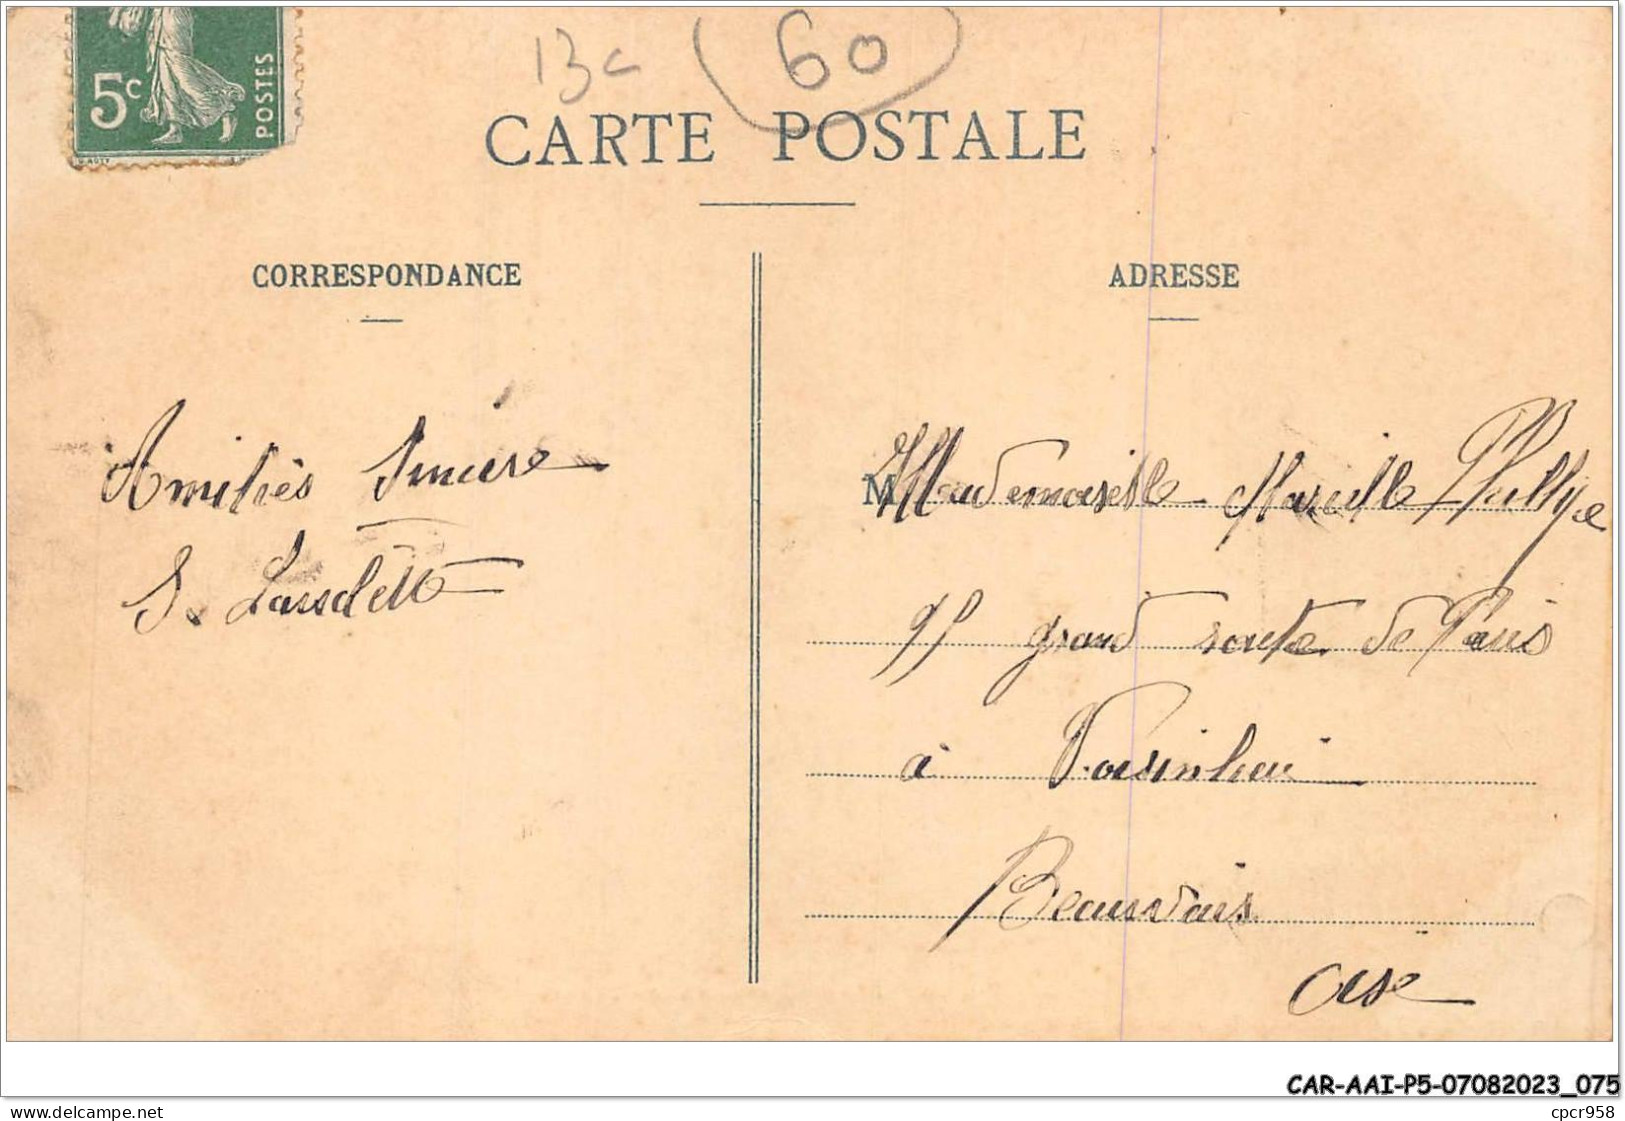 5c
POSTES
13c
60
CARTE POSTALE
CORRESPONDANCE
ADRESSE
Amitiés Sincère
S. Lausdette
M Mademoiselle Marcelle Phillype
95 grand route de Paris
à Voisinlieu
Beauvais
Oise
CAR-AAI-P5-07082023_075
Delcampe.net
cpcr958